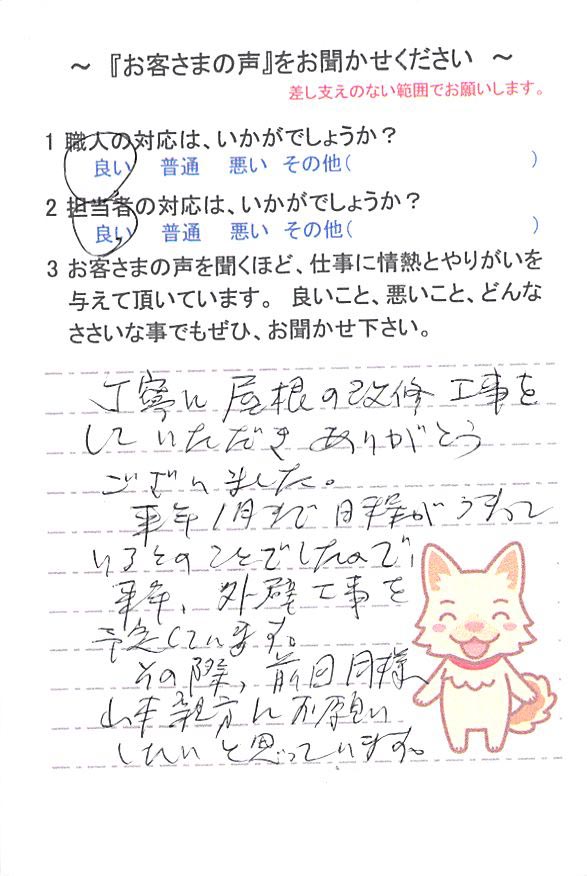 ～ 『お客さまの声』をお聞かせください ～
差し支えのない範囲でお願いします。
1 職人の対応は、いかがでしょうか?
良い 普通 悪い その他( )
2 担当者の対応は、いかがでしょうか?
良い 普通 悪い その他( )
3 お客さまの声を聞くほど、仕事に情熱とやりがいを
与えて頂いています。 良いこと、悪いこと、どんな
ささいな事でもぜひ、お聞かせ下さい。
丁寧に屋根の改修工事を
していただきありがとう
ございました。
来年1月まで日程がうまって
いるとのことでしたので、
来年、外壁工事を
予定しています。
その際、前回同様
山本親方にお願い
したいと思っています。